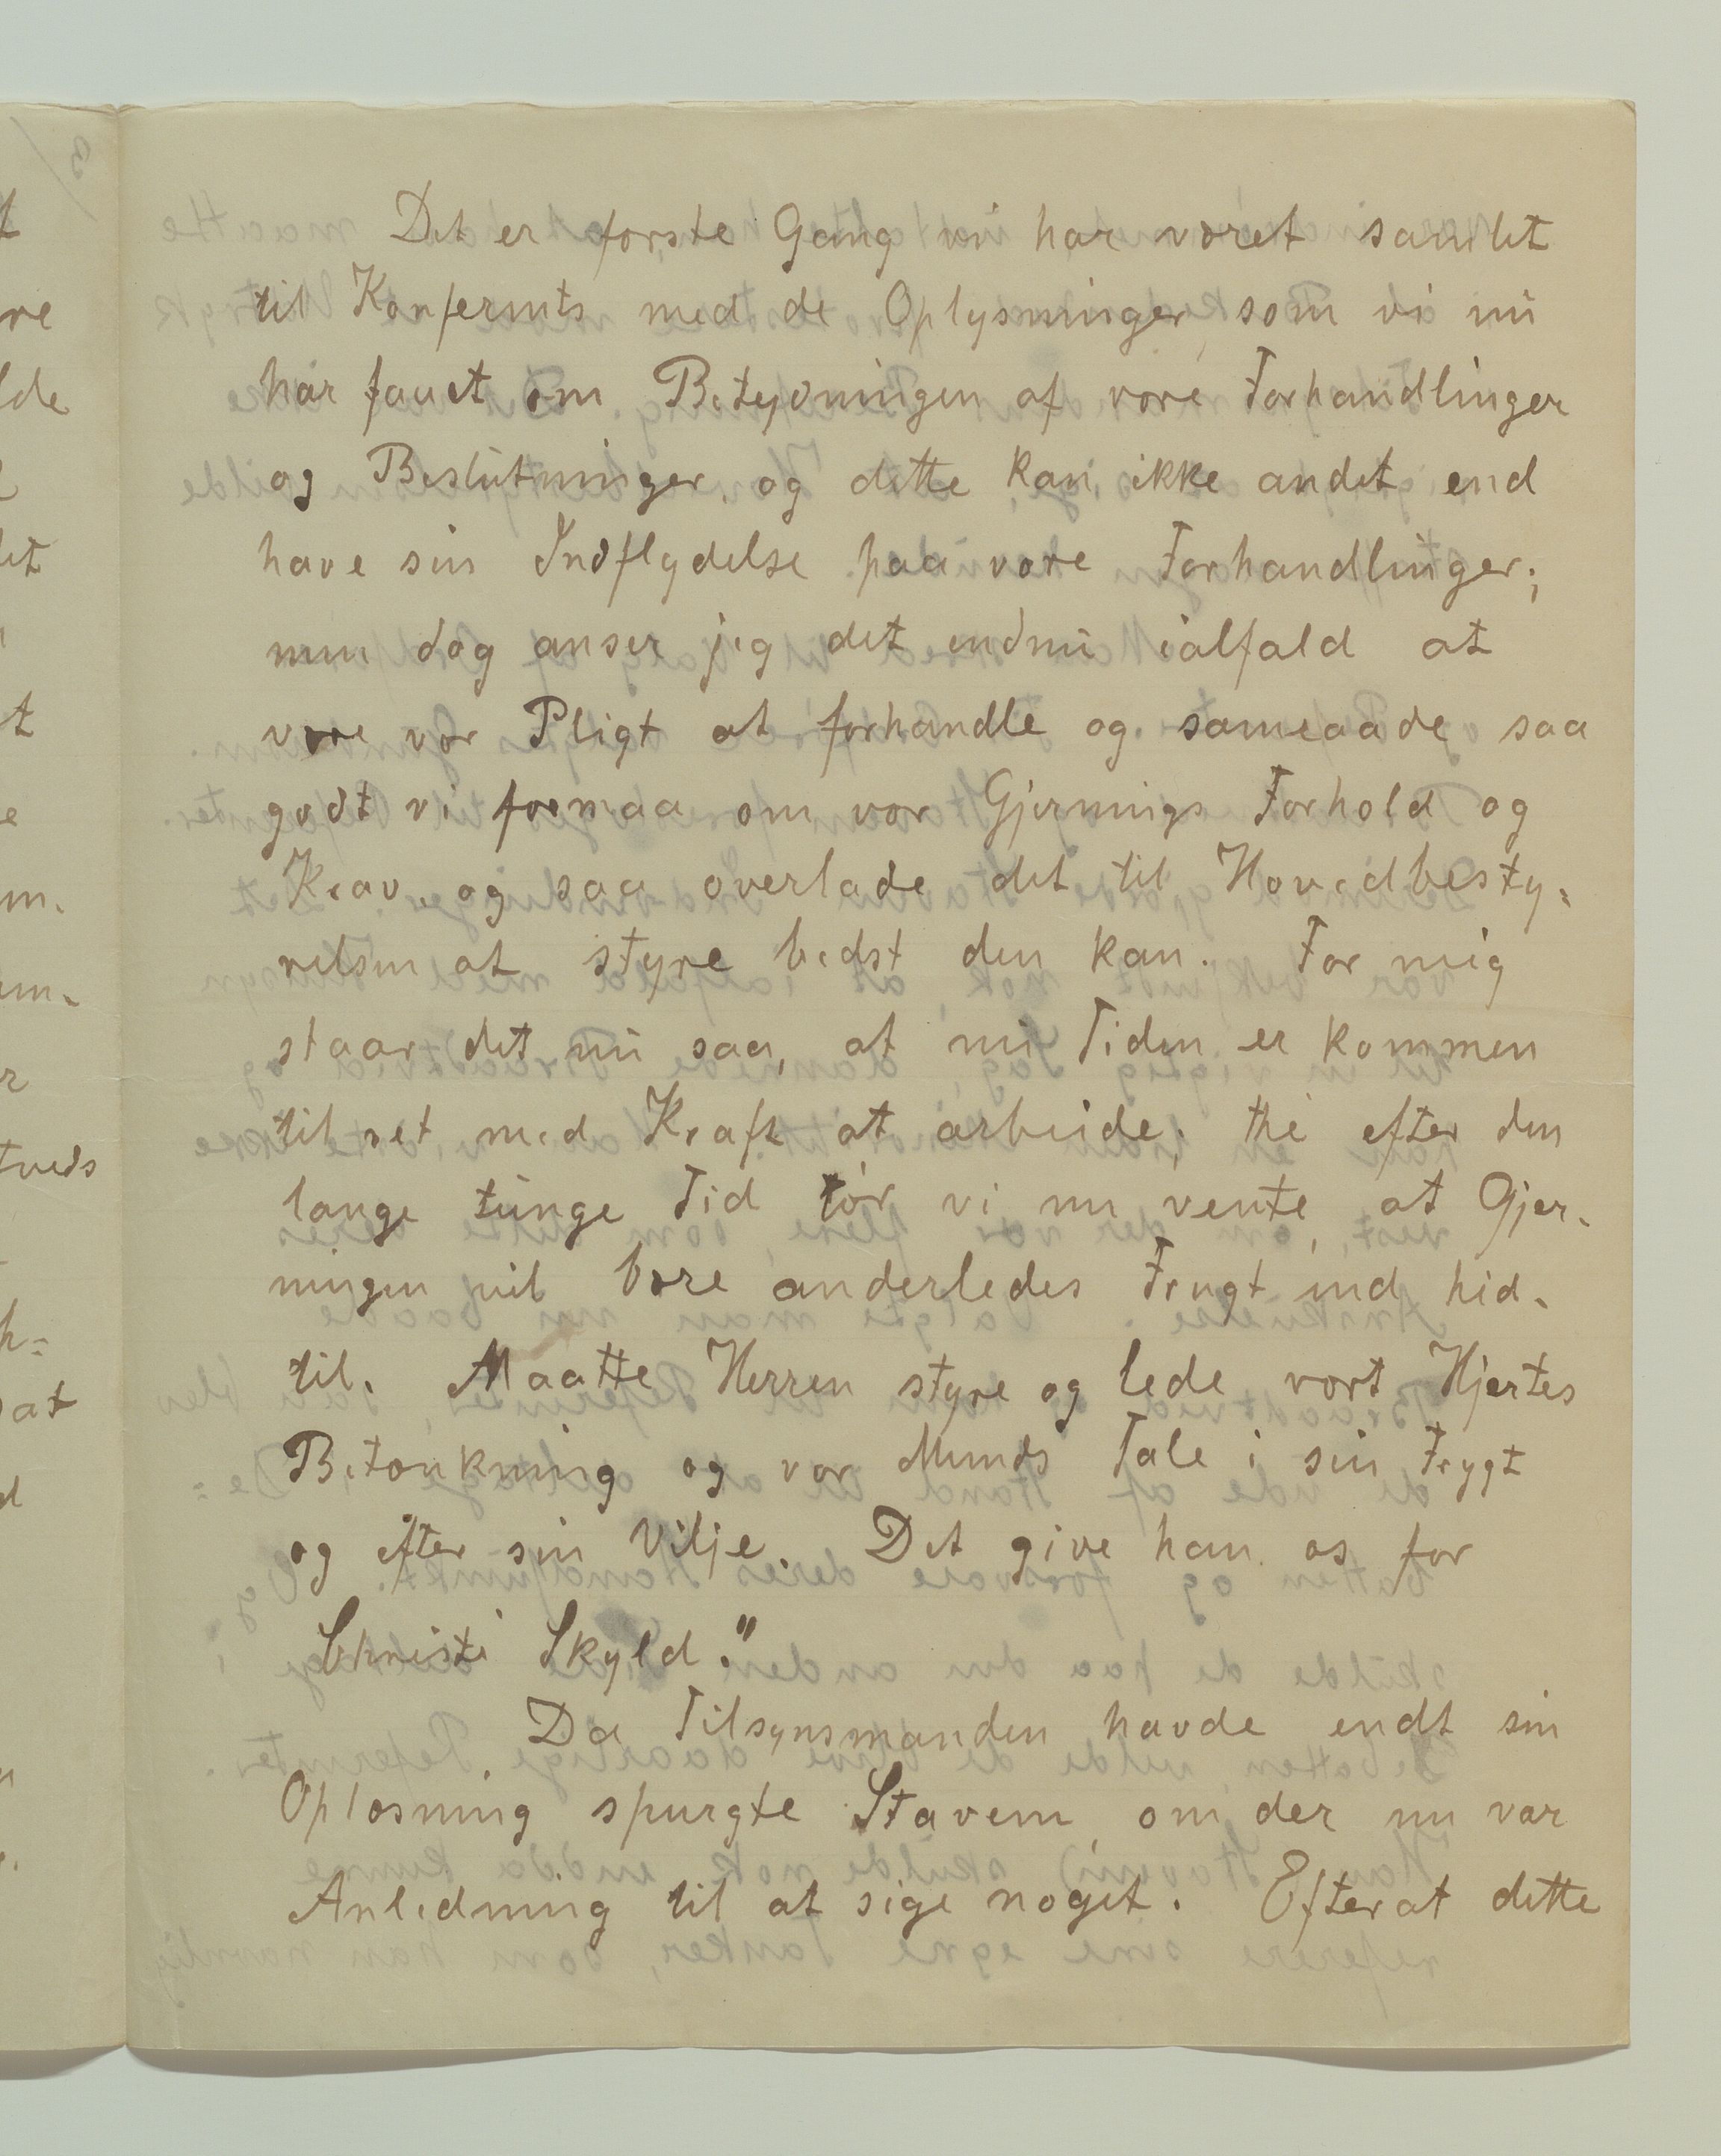 Det er første Gang vi har været samlet
til Konferents med de Oplysninger, som vi nu
har faaet om Betydningen af vore Forhandlinger
og Beslutninger, og dette kan ikke andet end
have sin Indflydelse paa vore Forhandlinger;
men dog anser jeg det endnu ialfald at
være vor Pligt at forhandle og sameaade saa
godt vi formaa om vor Gjernings Forhold og
Krav, og saa overlade det til Hovedbesty-
relsen at styre bedst den kan. For mig
staar det nu saa, at nu Tiden er kommen
til ret med Kraft at arbeide; thi efter den
lange tunge Tid tør vi nu vente, at Gjer-
ningen vil bære anderledes Frugt end hid-
til. Maatte Herren styre og lede vort Hjertes
Betænkning og vor Munds Tale i sin Frygt
og efter sin Vilje. Det give han os for
Christi Skyld."
Da Tilsynsmanden havde endt sin
Oplæsning spurgte Stavem, om der nu var
Anledning til at sige noget. Efterat dette